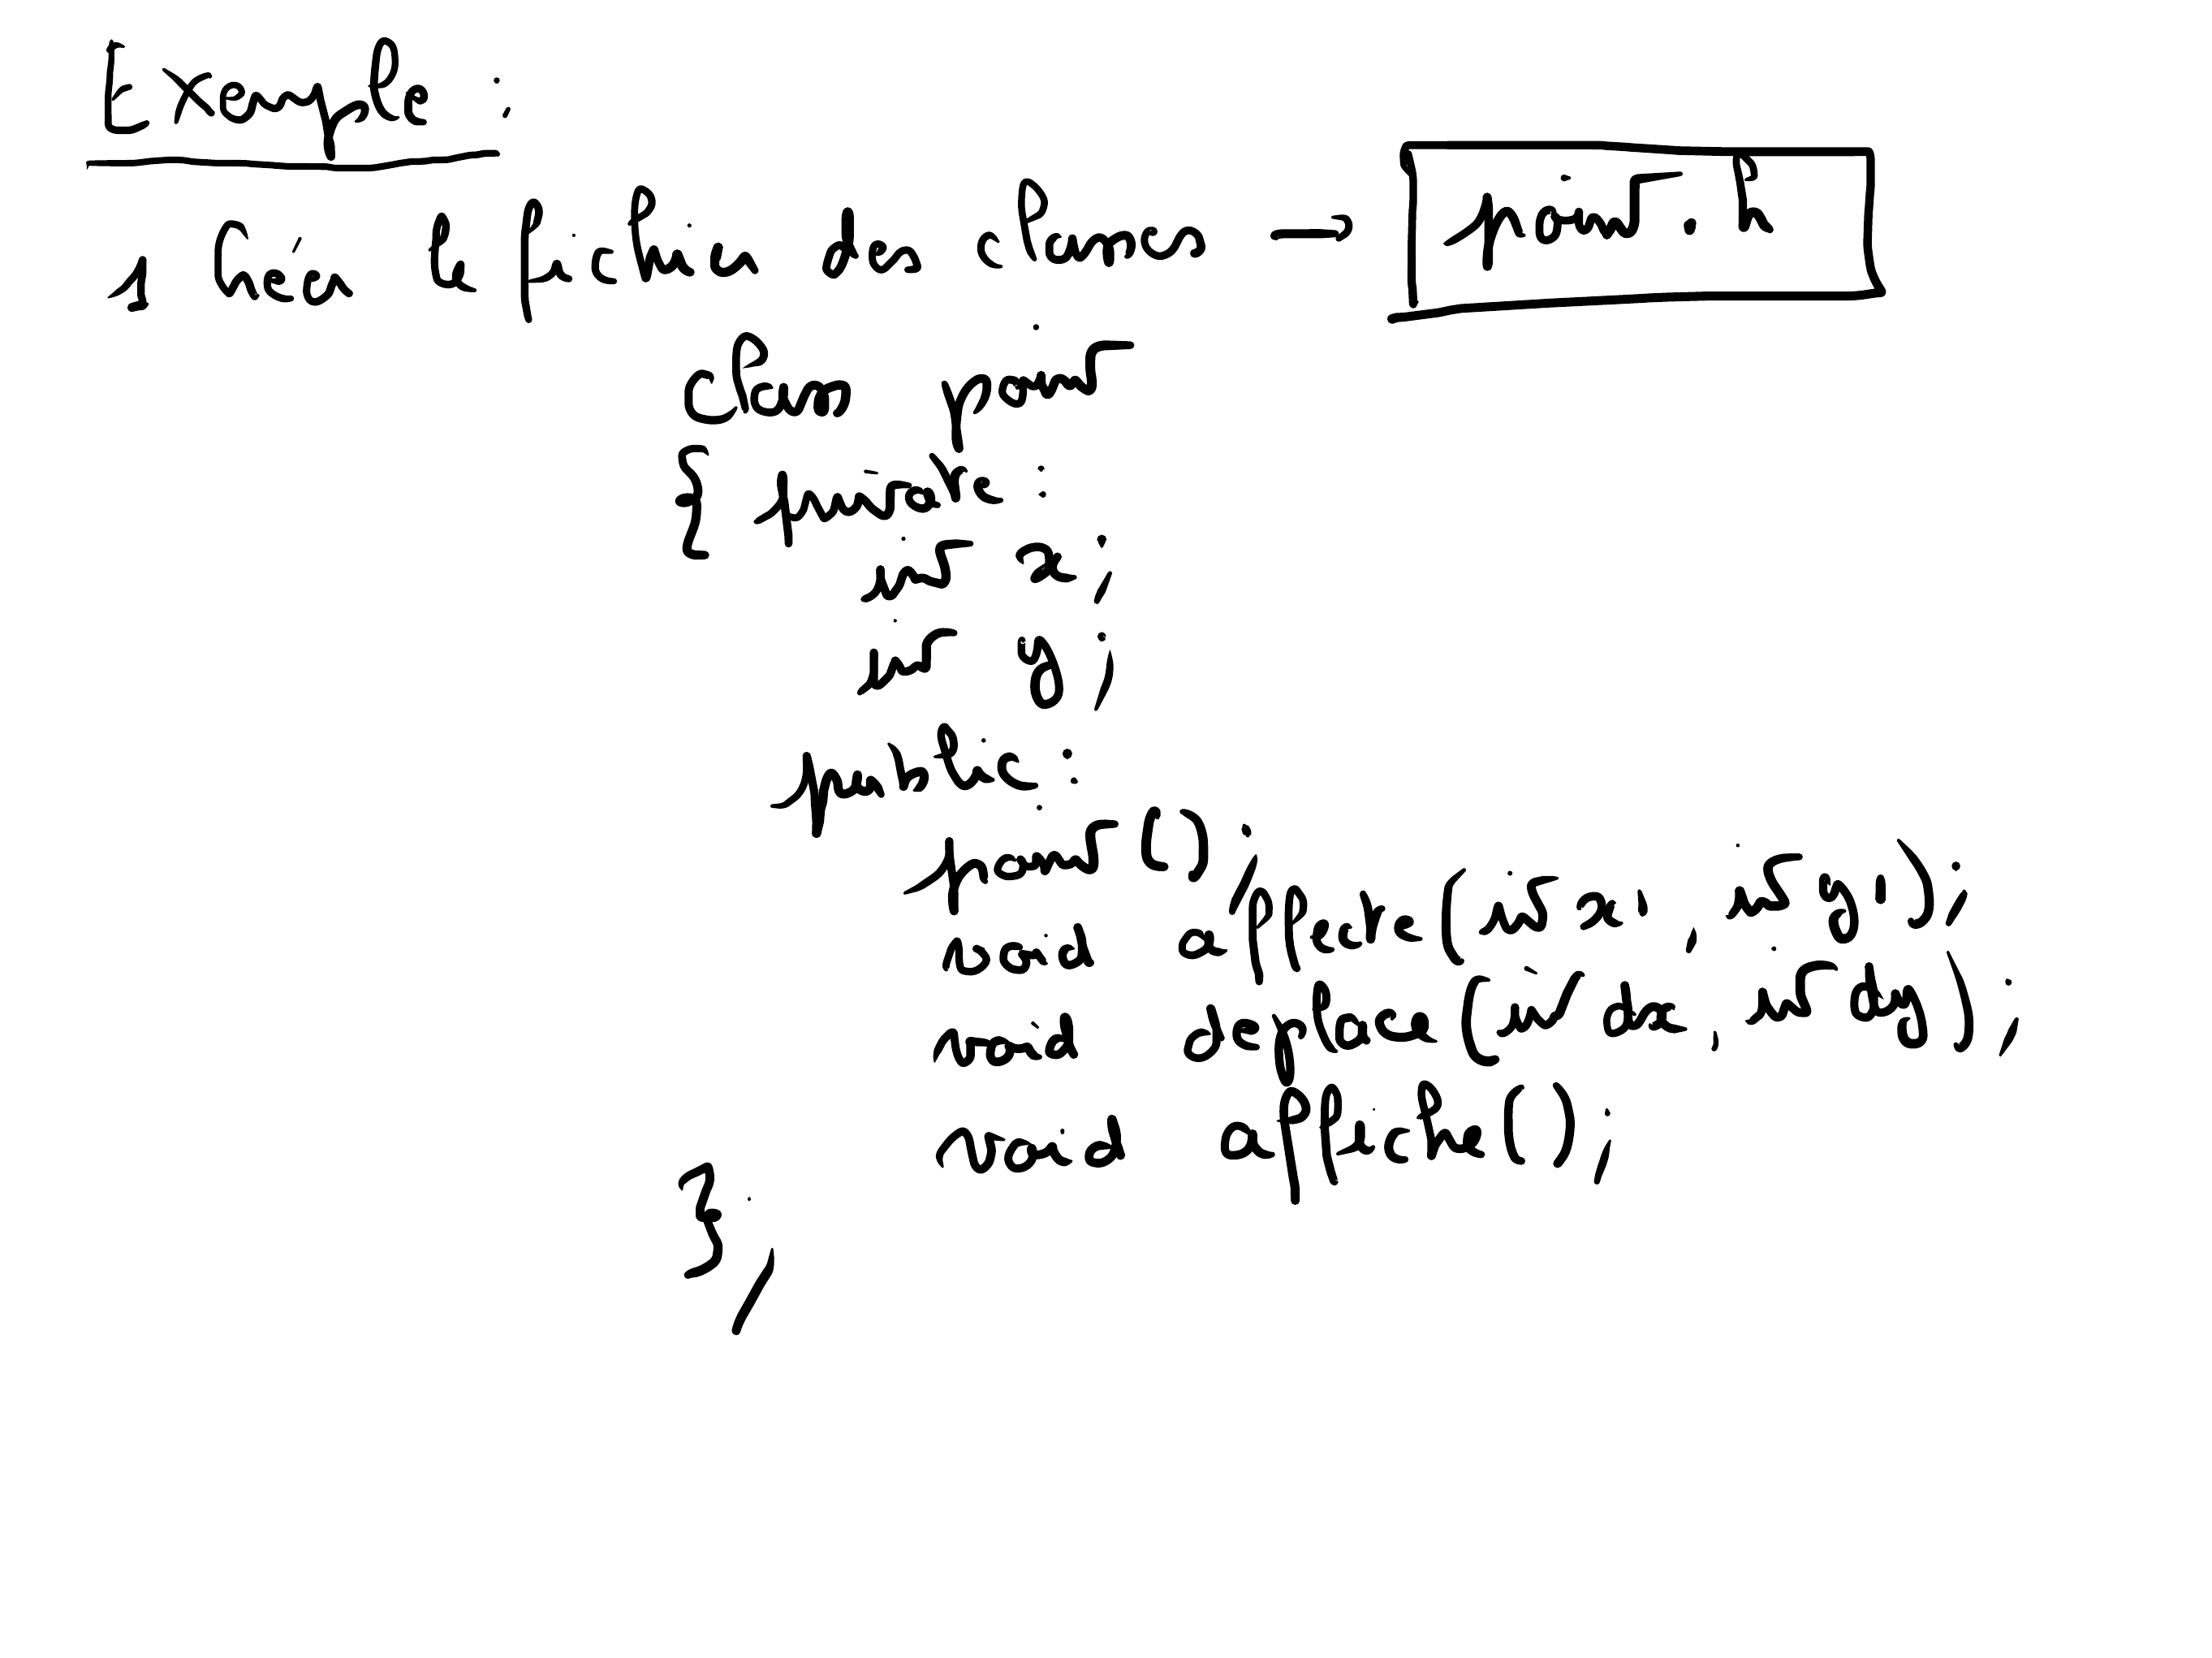 Exemple :
1 Créer le fichier des classes → point.h
class point
{ private :
int x;
int y;
public :
point();
void affecte(int x1, int y1);
void deplace(int dx, int dy);
void affiche();
};